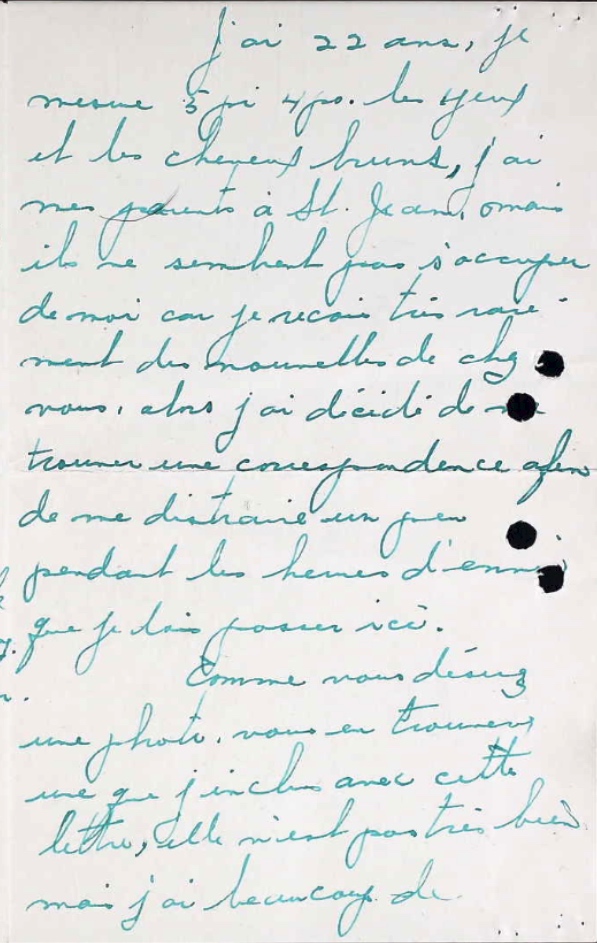 j'ai 22 ans, je
mesure 5 pi 4 po. les yeux
et les cheveux bruns, j'ai
mes parents à St. Jean, mais
ils ne semblent pas s'occuper
de moi car je recois très rare-
ment des nouvelles de chez
nous, alors j'ai décidé de me
trouver une correspondence afin
de me distraire un peu
pendant les heures d'ennui
que je dois passer ici.
Comme vous désirez
une photo, vous en trouverez
une que j'inclus avec cette
lettre, elle n'est pas très bien
mais j'ai beaucoup de